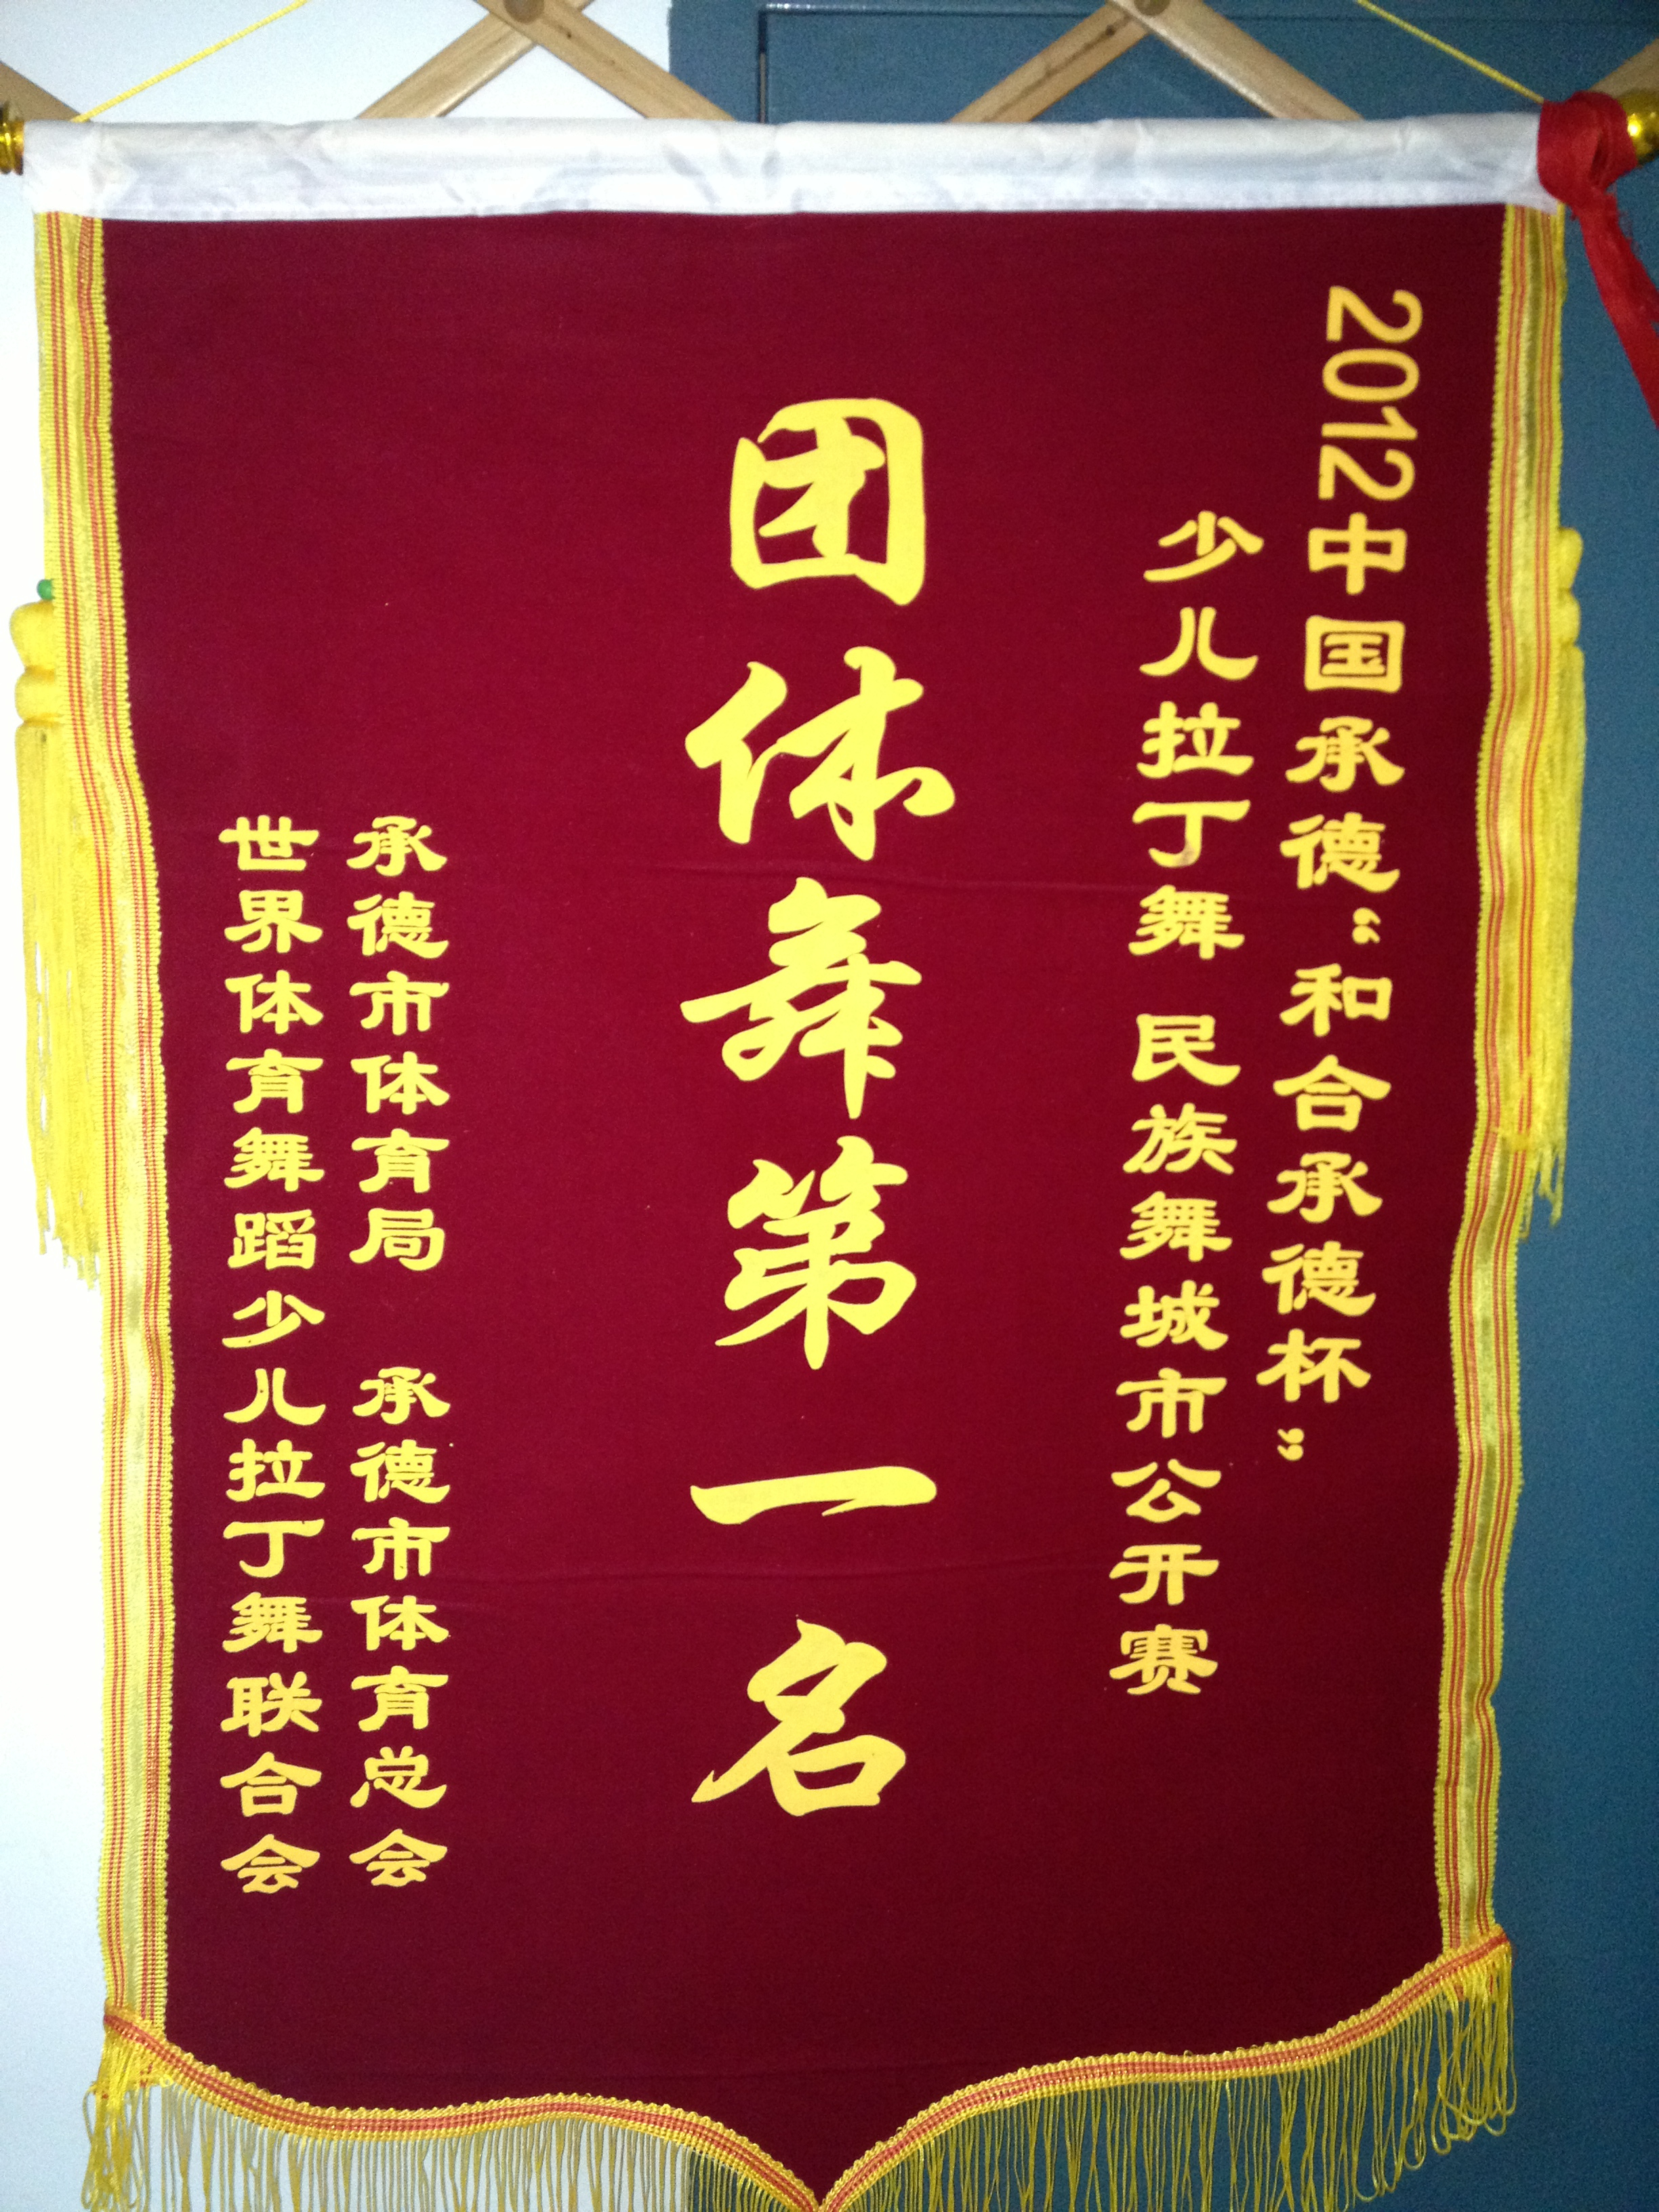 2012中国承德“和合承德杯”
少儿拉丁舞 民族舞城市公开赛
团体舞第一名
承德市体育局 承德市体育总会
世界体育舞蹈少儿拉丁舞联合会